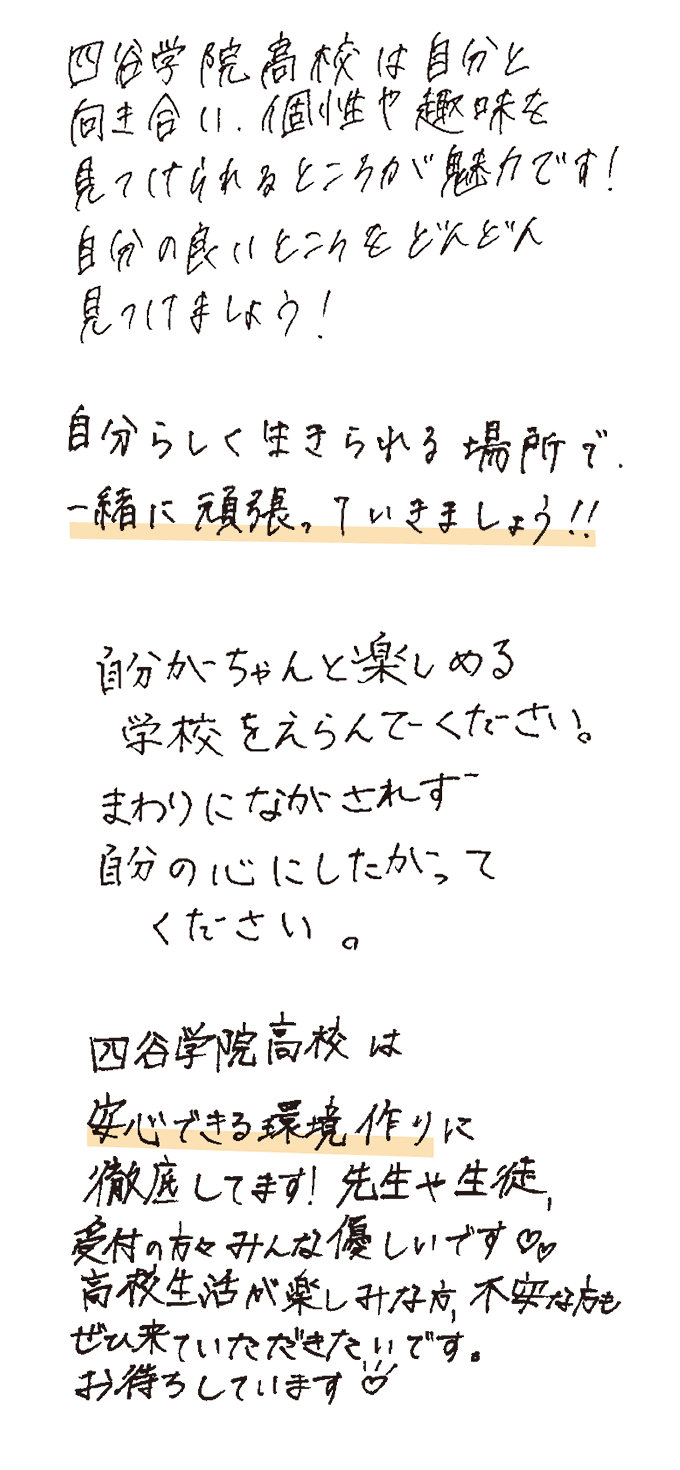 四谷学院高校は自分と
向き合い、個性や趣味を
見つけられるところが魅力です！
自分の良いところをどんどん
見つけましょう！
自分らしく生きられる場所で、
一緒に頑張っていきましょう!!
自分がちゃんと楽しめる
学校をえらんでください。
まわりにながされず
自分の心にしたがって
ください。
四谷学院高校は
安心できる環境作りに
徹底してます！先生や生徒、
受付の方々みんな優しいです♡♡
高校生活が楽しみな方、不安な方も
ぜひ来ていただきたいです。
お待ちしています♡